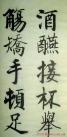 酒醼接杯舉
觴矯手頓足